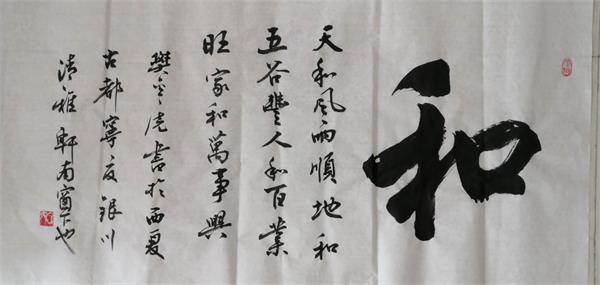 和
天和風雨順地和
五谷豐人和百業
旺家和萬事興
樊 虎書於西夏
古都寧夏銀川
清雅軒南窗下也